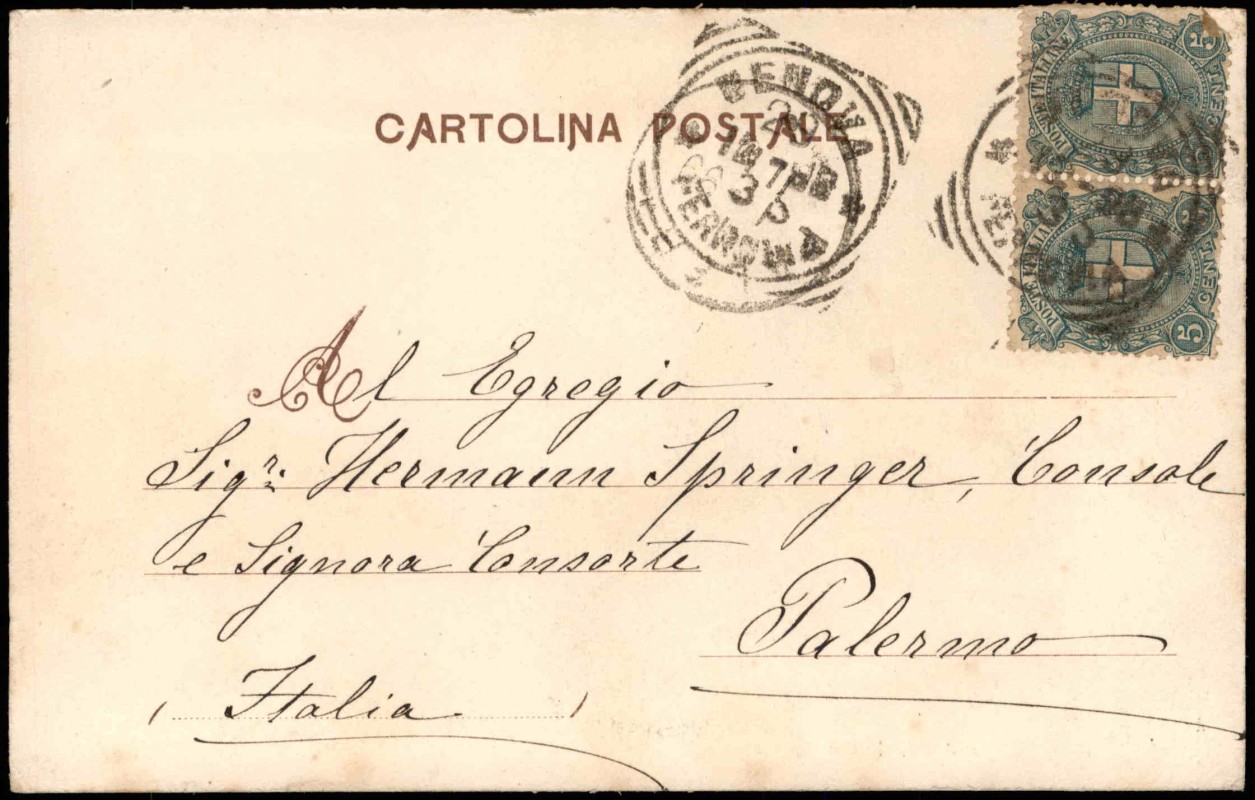 CARTOLINA POSTALE
GENOVA
FERROVIA
POSTE ITALIANE
CENT.
5
POSTE ITALIANE
CENT.
5
Al Egregio
Sigr: Hermann Springer, Console
e Signora Consorte
Palermo
( Italia )